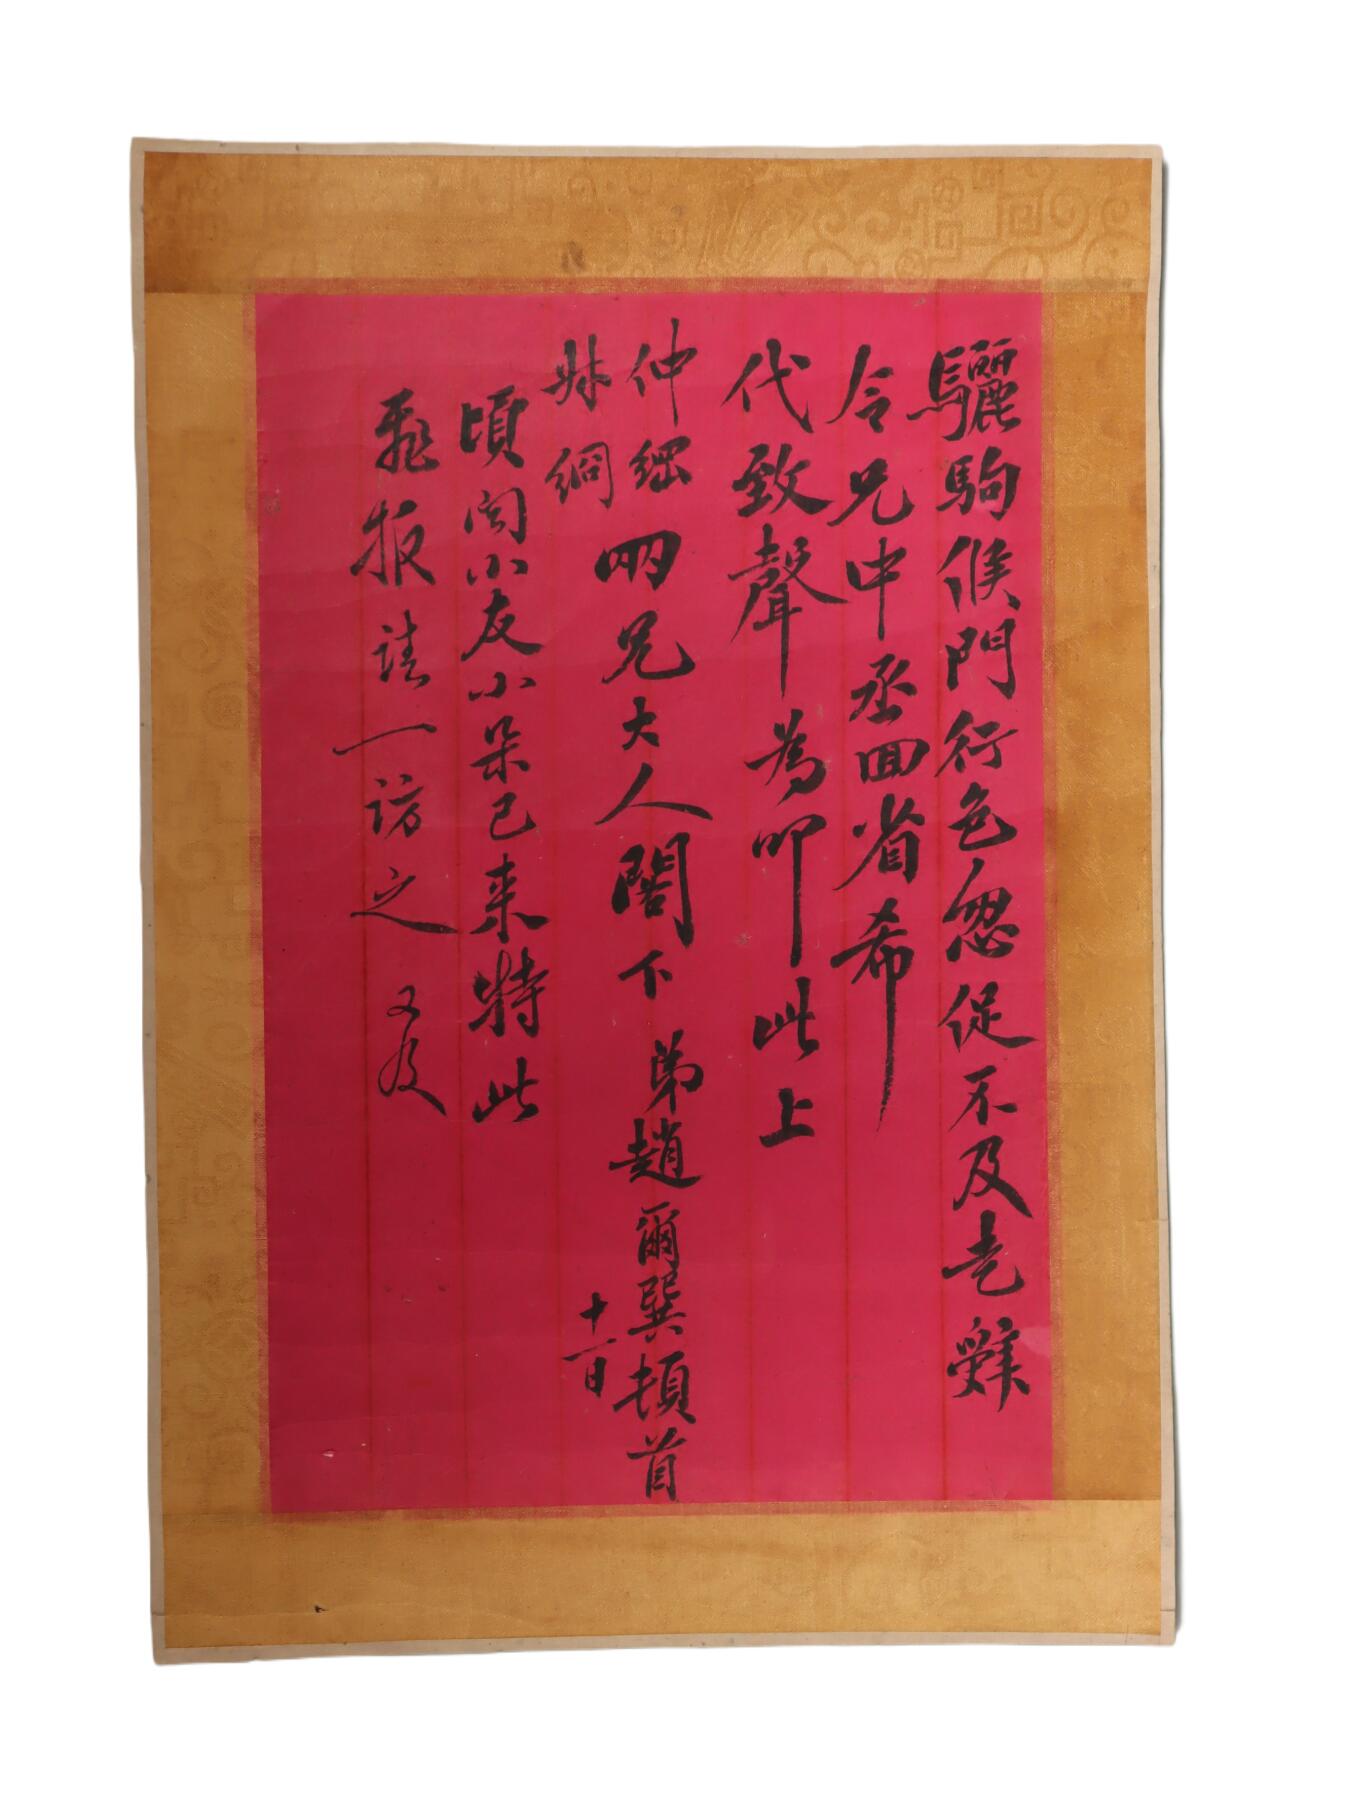 驪駒候門行色忽促不及走辤
令兄中丞回省希
代致聲為叩此上
仲綱
叔綗
兩兄大人閣下 弟趙爾巽頓首
十一日
頃闻小友小朵已来特此
飛报请一访之 又及